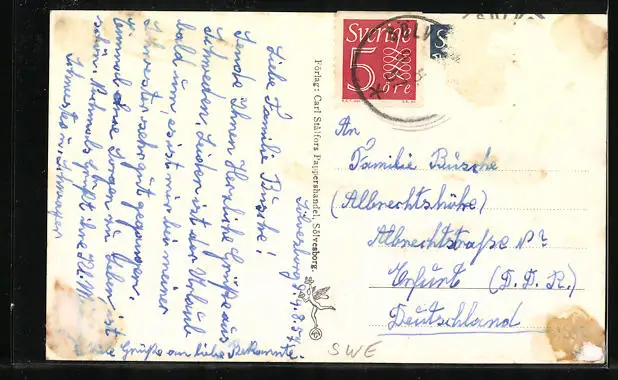 Sölvesborg, 9.8.57.
Liebe Familie Büsche!
Sende Ihnen Herzliche Grüße aus
Schweden. Leider ist der Urlaub
bald um, es ist mir bei meiner
Schwester sehr gut gegangen.
einmal ohne Sorgen zu leben ist
schön. Nochmals Grüßt ihre
Schwester u. Schwager
Grüße an liebe Bekannte.
Förlag: Carl Stålfors Pappershandel, Sölvesborg.
Sverige
5
öre
S
An
Familie Büsche
(Albrechtshöhe)
Albrechtstraße No
Erfurt (D.D.R.)
Deutschland
SWE